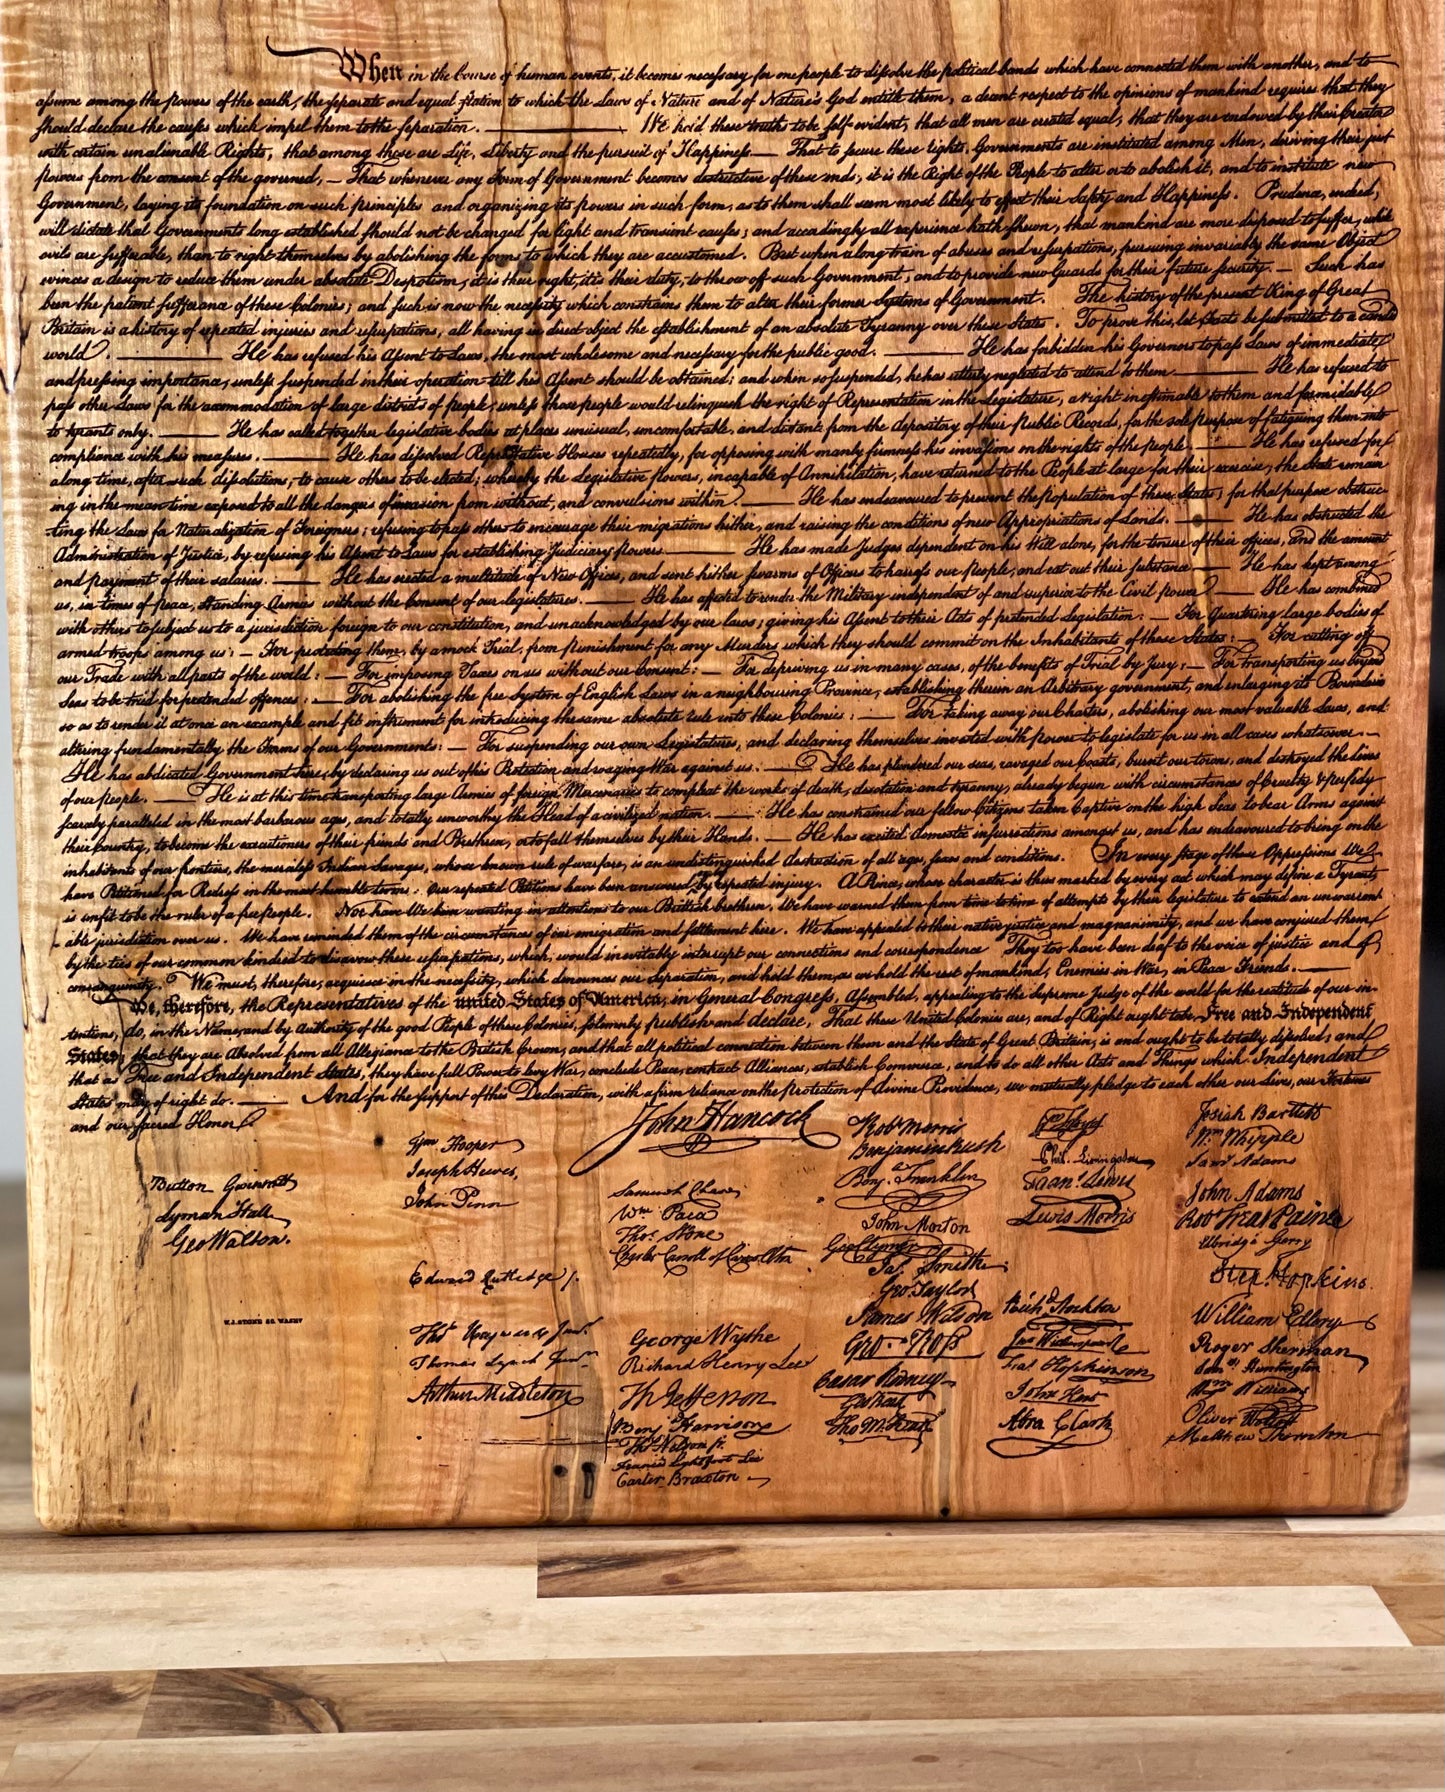 When in the Course of human events, it becomes necessary for one people to dissolve the political bands which have connected them with another, and to
assume among the powers of the earth, the separate and equal station to which the Laws of Nature and of Nature's God entitle them, a decent respect to the opinions of mankind requires that they
should declare the causes which impel them to the separation. We hold these truths to be self-evident, that all men are created equal, that they are endowed by their Creator
with certain unalienable Rights, that among these are Life, Liberty and the pursuit of Happiness— That to secure these rights, Governments are instituted among Men, deriving their just
powers from the consent of the governed, — That whenever any Form of Government becomes destructive of these ends, it is the Right of the People to alter or to abolish it, and to institute new
Government, laying its foundation on such principles and organizing its powers in such form, as to them shall seem most likely to effect their Safety and Happiness. Prudence, indeed,
will dictate that Governments long established should not be changed for light and transient causes; and accordingly all experience hath shewn, that mankind are more disposed to suffer, while
evils are sufferable, than to right themselves by abolishing the forms to which they are accustomed. But when a long train of abuses and usurpations, pursuing invariably the same Object
evinces a design to reduce them under absolute Despotism, it is their right, it is their duty, to throw off such Government, and to provide new Guards for their future security. — Such has
been the patient sufferance of these Colonies; and such is now the necessity which constrains them to alter their former Systems of Government. The history of the present King of Great
Britain is a history of repeated injuries and usurpations, all having in direct object the establishment of an absolute Tyranny over these States. To prove this, let Facts be submitted to a candid
world. — He has refused his Assent to Laws, the most wholesome and necessary for the public good. — He has forbidden his Governors to pass Laws of immediate
and pressing importance, unless suspended in their operation till his Assent should be obtained; and when so suspended, he has utterly neglected to attend to them. — He has refused to
pass other Laws for the accommodation of large districts of people, unless those people would relinquish the right of Representation in the Legislature, a right inestimable to them and formidable
to tyrants only. — He has called together legislative bodies at places unusual, uncomfortable, and distant from the depository of their Public Records, for the sole purpose of fatiguing them into
compliance with his measures. — He has dissolved Representative Houses repeatedly, for opposing with manly firmness his invasions on the rights of the people. — He has refused for
a long time, after such dissolutions, to cause others to be elected; whereby the Legislative powers, incapable of Annihilation, have returned to the People at large for their exercise; the State remain
ing in the mean time exposed to all the dangers of invasion from without, and convulsions within. — He has endeavoured to prevent the population of these States; for that purpose obstruc-
ting the Laws for Naturalization of Foreigners; refusing to pass others to encourage their migrations hither, and raising the conditions of new Appropriations of Lands. — He has obstructed the
Administration of Justice, by refusing his Assent to Laws for establishing Judiciary powers. — He has made Judges dependent on his Will alone, for the tenure of their offices, and the amount
and payment of their salaries. — He has erected a multitude of New Offices, and sent hither swarms of Officers to harrass our people, and eat out their substance. — He has kept among
us, in times of peace, Standing Armies without the Consent of our legislatures. — He has affected to render the Military independent of and superior to the Civil power. — He has combined
with others to subject us to a jurisdiction foreign to our constitution, and unacknowledged by our laws; giving his Assent to their Acts of pretended Legislation: — For Quartering large bodies of
armed troops among us: — For protecting them, by a mock Trial, from punishment for any Murders which they should commit on the Inhabitants of these States: — For cutting off
our Trade with all parts of the world: — For imposing Taxes on us without our Consent: — For depriving us in many cases, of the benefits of Trial by Jury: — For transporting us beyond
Seas to be tried for pretended offences: — For abolishing the free System of English Laws in a neighbouring Province, establishing therein an Arbitrary government, and enlarging its Boundaries
so as to render it at once an example and fit instrument for introducing the same absolute rule into these Colonies: — For taking away our Charters, abolishing our most valuable Laws, and
altering fundamentally the Forms of our Governments: — For suspending our own Legislatures, and declaring themselves invested with power to legislate for us in all cases whatsoever. —
He has abdicated Government here, by declaring us out of his Protection and waging War against us. — He has plundered our seas, ravaged our Coasts, burnt our towns, and destroyed the lives
of our people. — He is at this time transporting large Armies of foreign Mercenaries to compleat the works of death, desolation and tyranny, already begun with circumstances of Cruelty & perfidy
scarcely paralleled in the most barbarous ages, and totally unworthy the Head of a civilized nation. — He has constrained our fellow Citizens taken Captive on the high Seas to bear Arms against
their Country, to become the executioners of their friends and Brethren, or to fall themselves by their Hands. — He has excited domestic insurrections amongst us, and has endeavoured to bring on the
inhabitants of our frontiers, the merciless Indian Savages, whose known rule of warfare, is an undistinguished destruction of all ages, sexes and conditions. In every stage of these Oppressions We
have Petitioned for Redress in the most humble terms: Our repeated Petitions have been answered by repeated injury. A Prince, whose character is thus marked by every act which may define a Tyrant,
is unfit to be the ruler of a free people. Nor have We been wanting in attentions to our Brittish brethren. We have warned them from time to time of attempts by their legislature to extend an unwarrant
able jurisdiction over us. We have reminded them of the circumstances of our emigration and settlement here. We have appealed to their native justice and magnanimity, and we have conjured them
by the ties of our common kindred to disavow these usurpations, which, would inevitably interrupt our connections and correspondence They too have been deaf to the voice of justice and of
consanguinity. We must, therefore, acquiesce in the necessity, which denounces our Separation, and hold them, as we hold the rest of mankind, Enemies in War, in Peace Friends. —
We, therefore, the Representatives of the united States of America, in General Congress, Assembled, appealing to the Supreme Judge of the world for the rectitude of our in-
tentions, do, in the Name, and by Authority of the good People of these Colonies, solemnly publish and declare, That these United Colonies are, and of Right ought to be Free and Independent
States; that they are Absolved from all Allegiance to the British Crown, and that all political connection between them and the State of Great Britain, is and ought to be totally dissolved; and
that as Free and Independent States, they have full Power to levy War, conclude Peace, contract Alliances, establish Commerce, and to do all other Acts and Things which Independent
States may of right do. — And for the support of this Declaration, with a firm reliance on the protection of divine Providence, we mutually pledge to each other our Lives, our Fortunes
and our sacred Honor.
John Hancock
Button Gwinnett
Lyman Hall
Geo Walton.
Wm Hooper
Joseph Hewes,
John Penn
Edward Rutledge /.
Thos Heyward Junr.
Thomas Lynch Junr.
Arthur Middleton
Samuel Chase
Wm Paca
Thos. Stone
Charles Carroll of Carrollton
George Wythe
Richard Henry Lee
Th Jefferson
Benj Harrison
Thos Nelson jr.
Francis Lightfoot Lee
Carter Braxton
Robt Morris
Benjamin Rush
Benj. Franklin
John Morton
Geo Clymer
Jas. Smith
Geo. Taylor
James Wilson
Geo. Ross
Caesar Rodney
Geo Read
Tho M:Kean
Wm Floyd
Phil. Livingston
Frans. Lewis
Lewis Morris
Richd. Stockton
Jno Witherspoon
Fras. Hopkinson
John Hart
Abra Clark
Josiah Bartlett
Wm Whipple
Saml Adams
John Adams
Robt Treat Paine
Elbridge Gerry
Step. Hopkins
William Ellery
Roger Sherman
Saml Huntington
Wm Williams
Oliver Wolcott
Matthew Thornton
W.J. STONE SC. WASHN